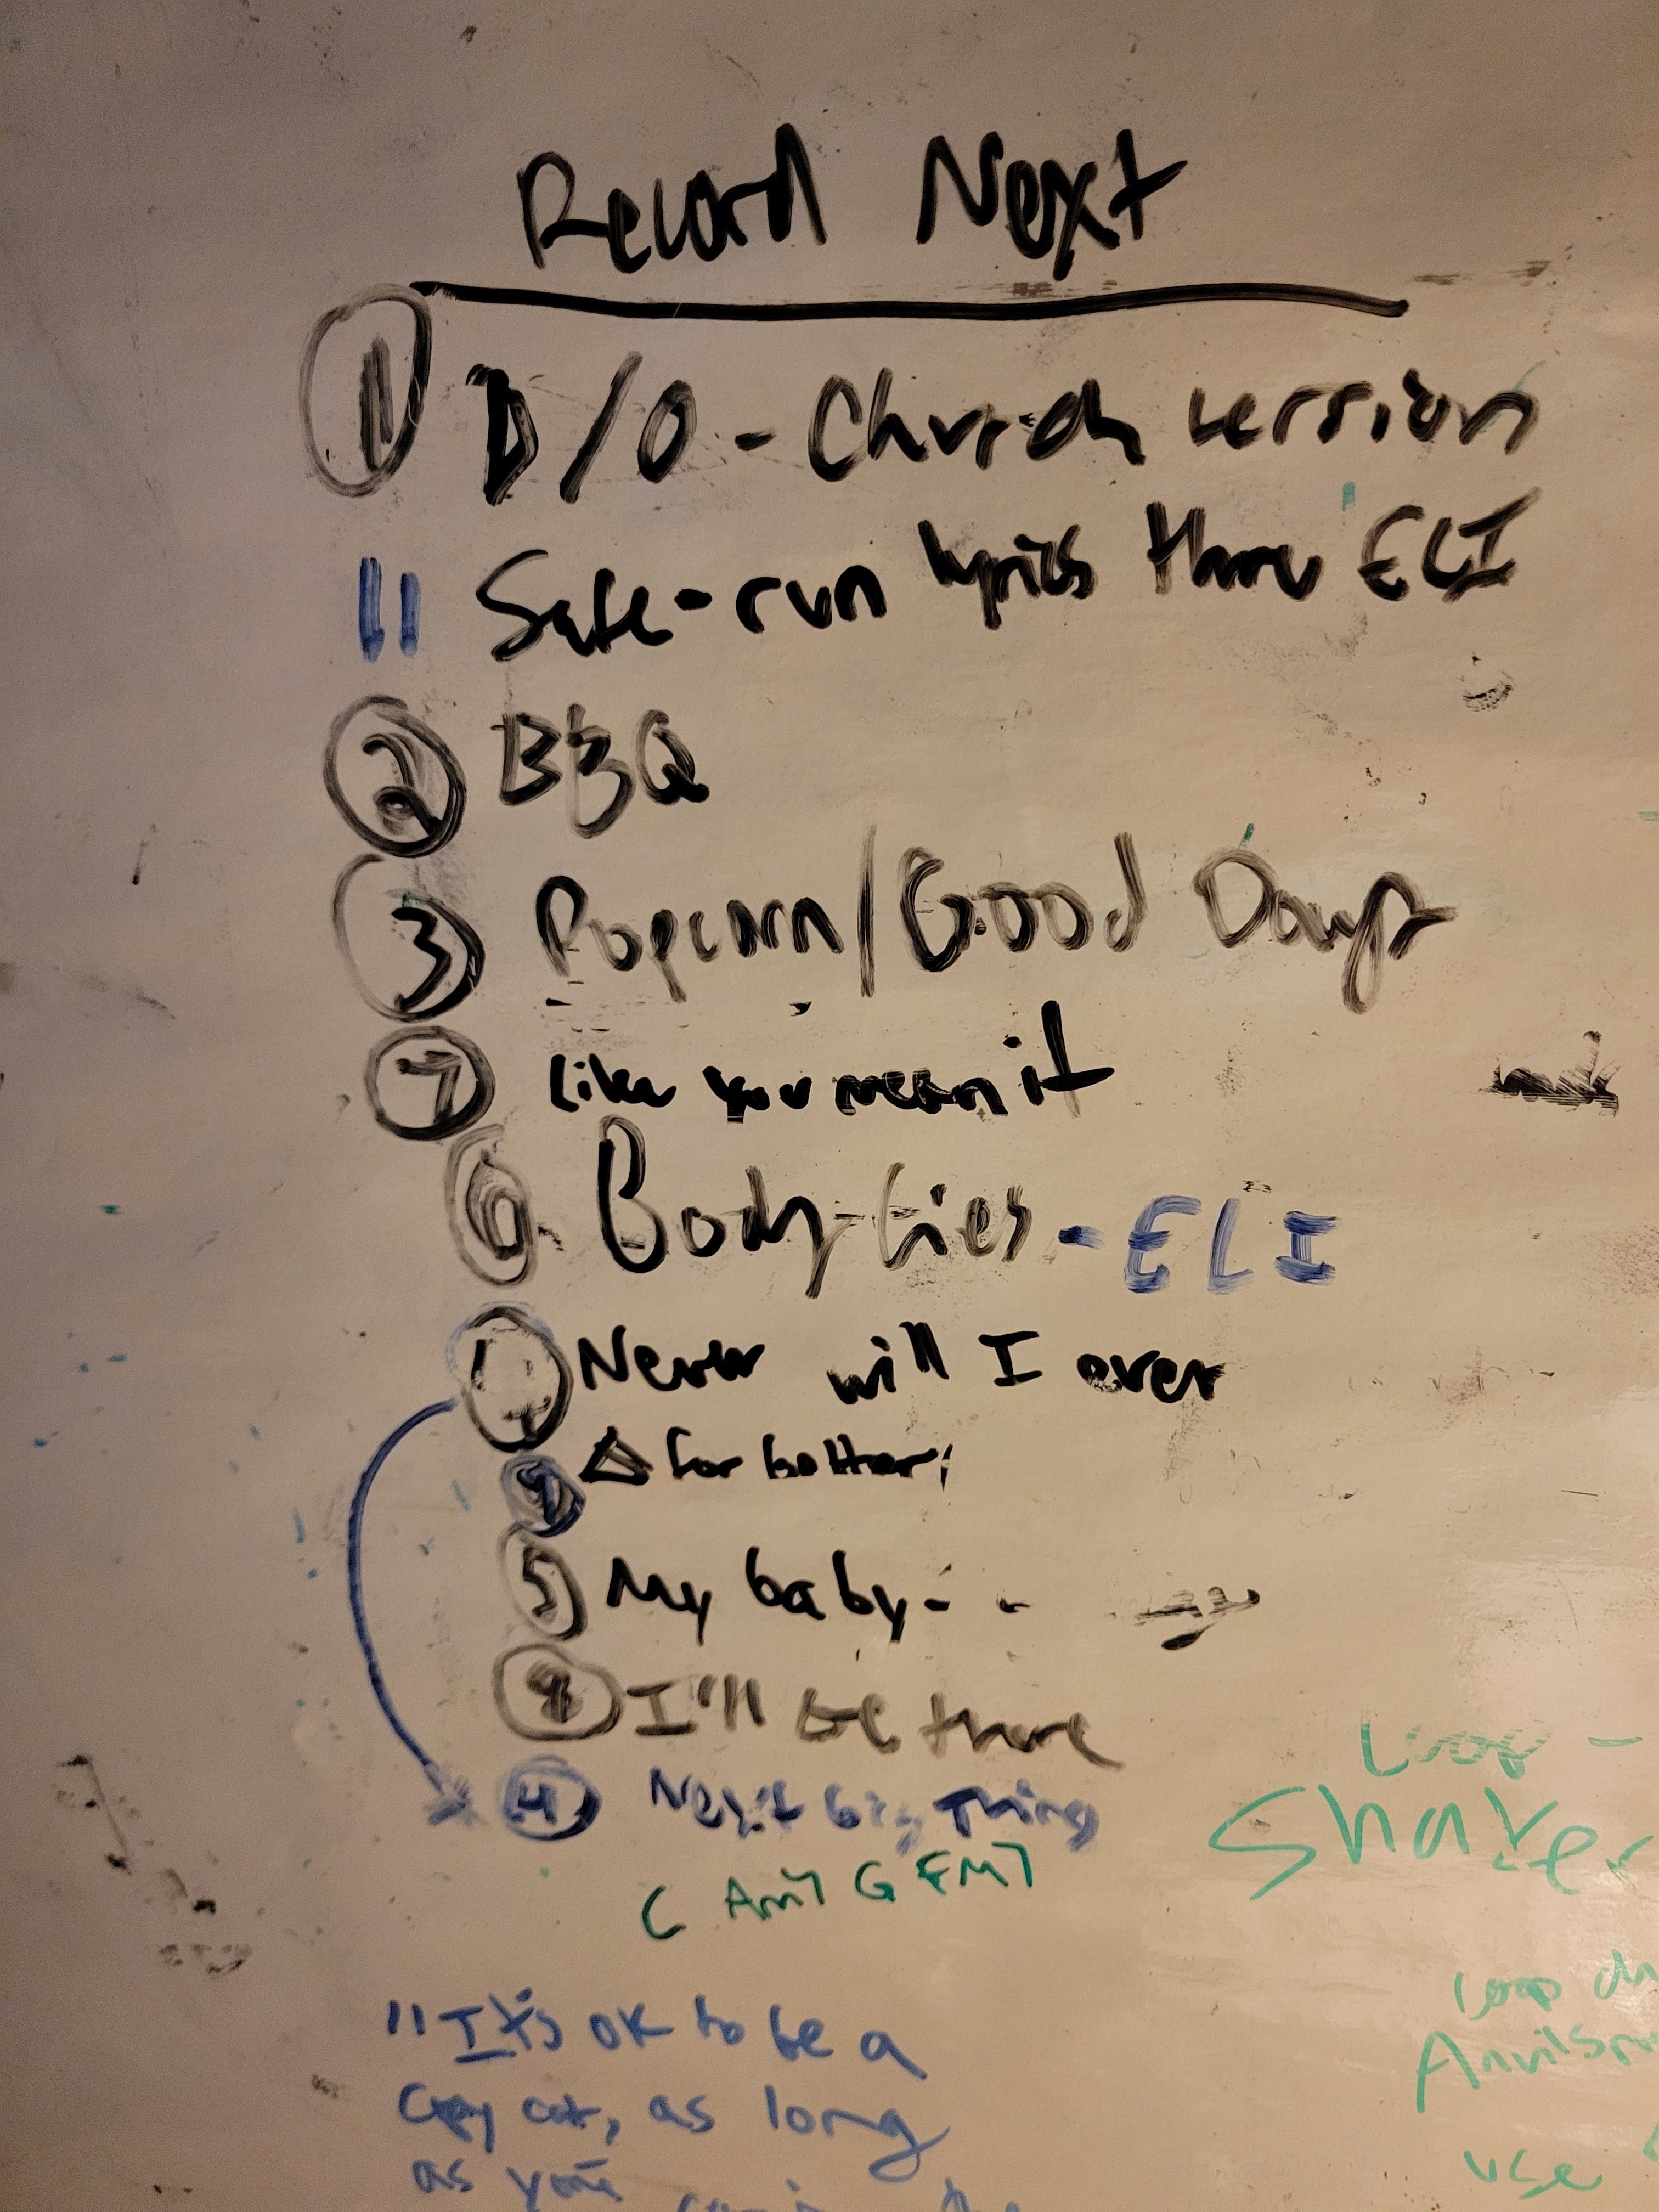 Record Next
1 D/O - Church version
11 Safe - run lyrics thru ELI
2 BBQ
3 Popcorn/Good Days
7 Like you mean it
6 Body-lies - ELI
Never will I ever
Δ for better
5 My baby - -
I'll be there
4 Next big Thing
Loop -
Shaker
"It's ok to be a
Copy cat, as long
as you're
Loop
use